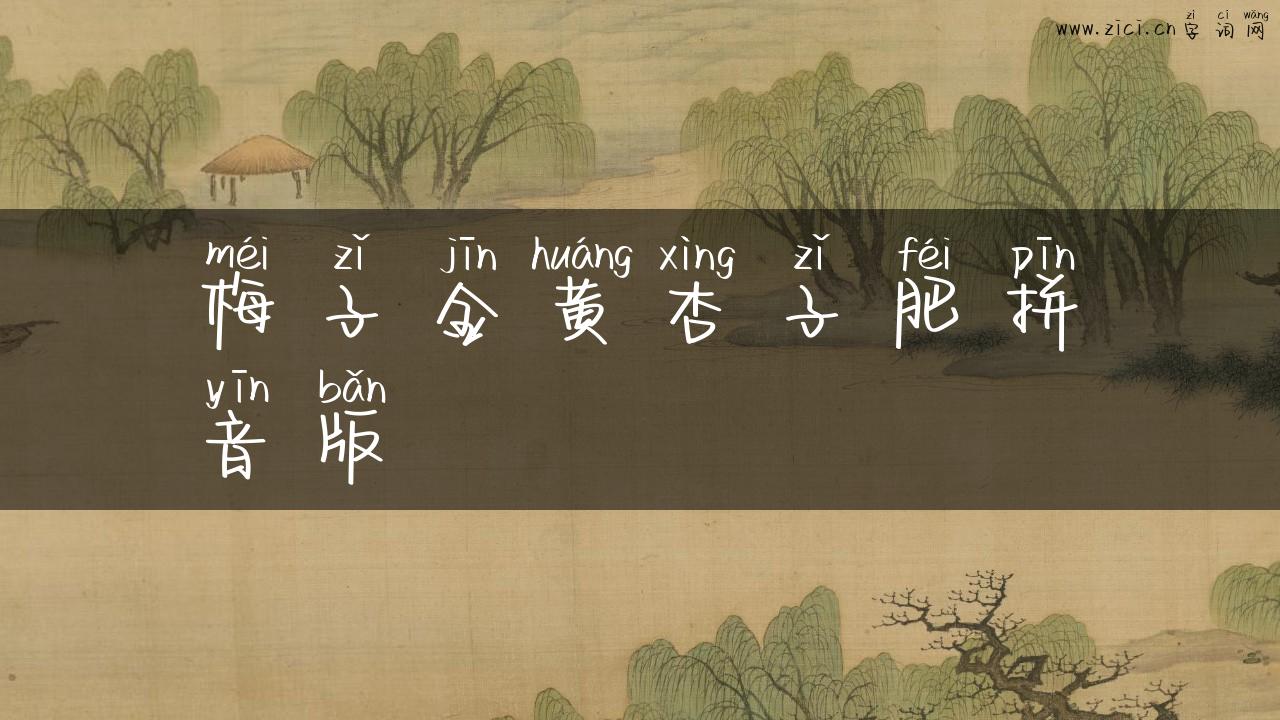 zì cí wǎng
www.zici.cn 字 词 网
méi zǐ jīn huáng xìng zǐ féi pīn
梅 子 金 黄 杏 子 肥 拼
yīn bǎn
音 版